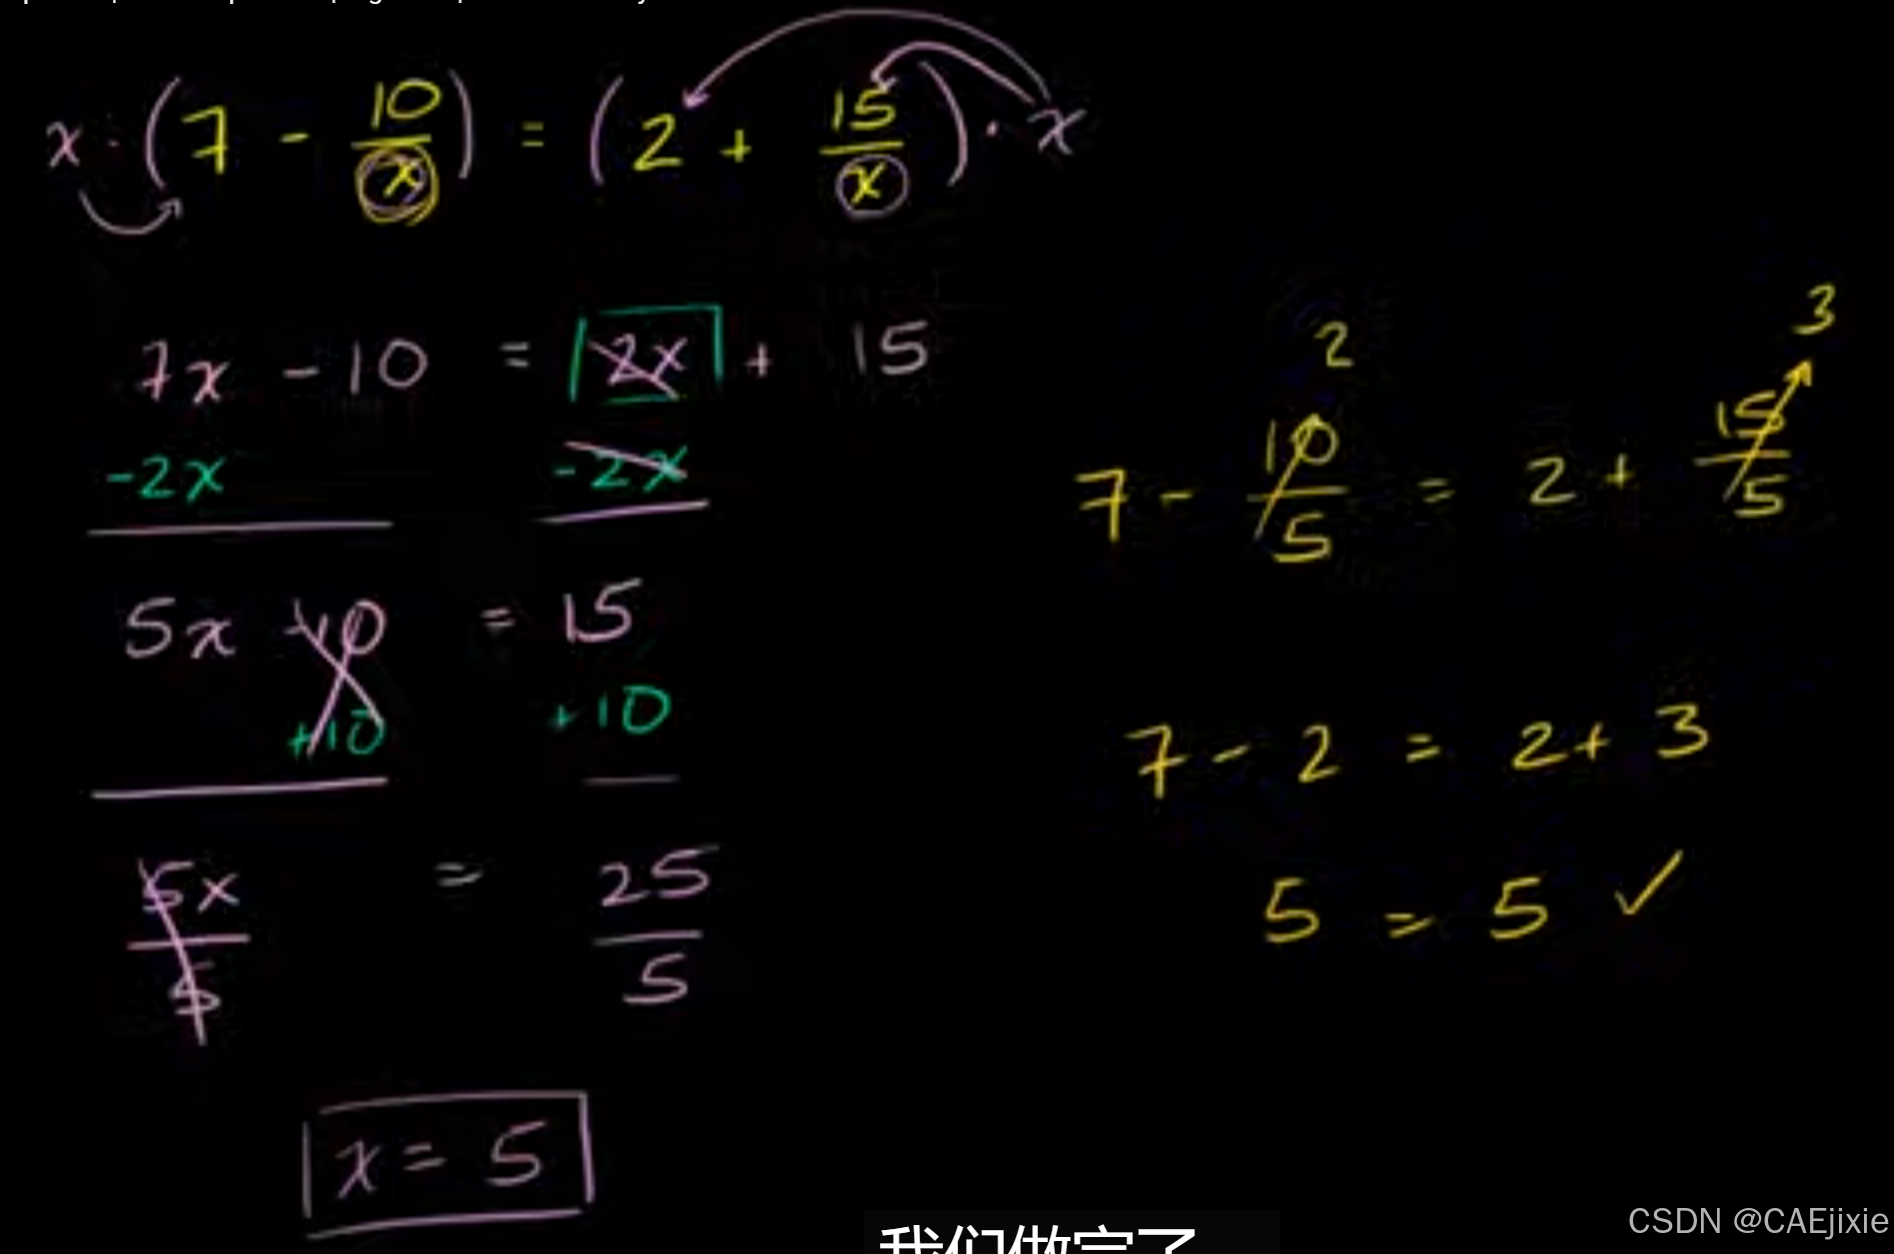 x · (7 - 10/x) = (2 + 15/x) · x
7x - 10 = 2x + 15
-2x -2x
5x -10 = 15
+10 +10
5x/5 = 25/5
x = 5
2 3
7 - 10/5 = 2 + 15/5
7 - 2 = 2 + 3
5 = 5 ✓
我们做完了
CSDN @CAEjixie